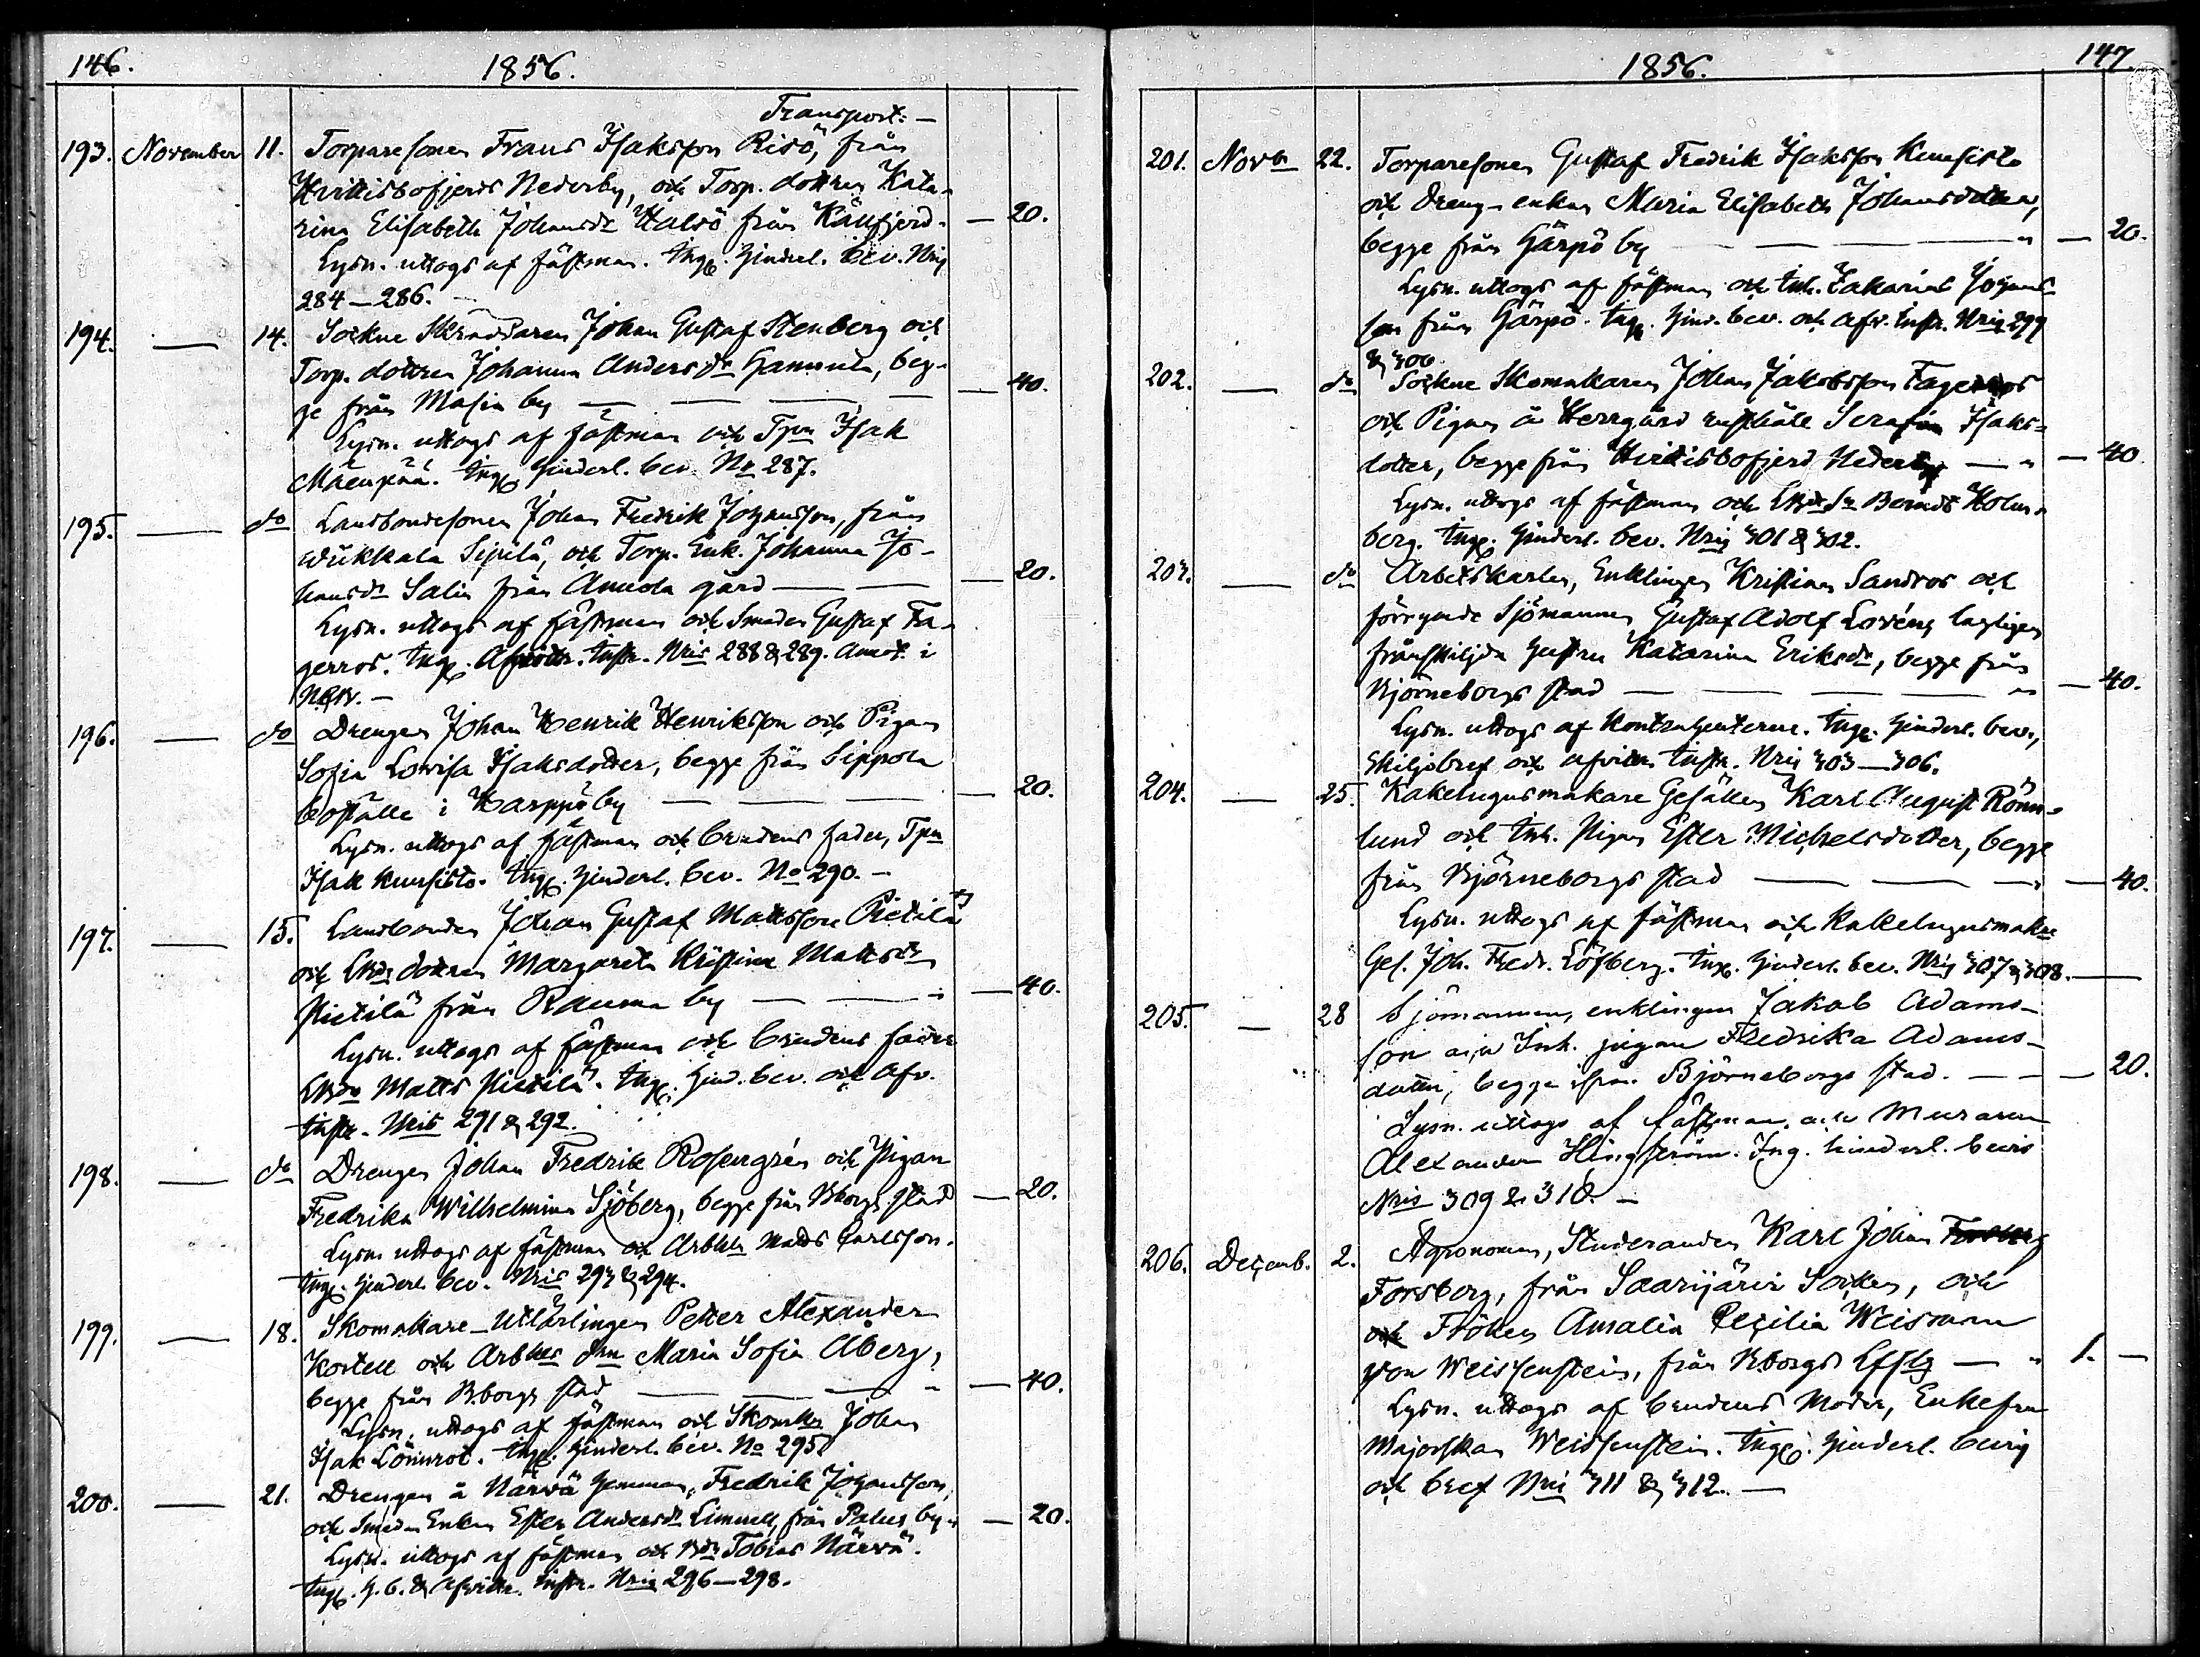 146.
1856.
Transport: —
193. November 11. Torparesonen Frans Isaksson Risö, från
Hvittisbofjerds Nederby, och Torp. dottren Kata-
rina Elisabeth Johansdr Halsö från Kållfjerd. — 20.
Lysn. uttogs af fästman. Ingg. hinderl. bev. Nris
284—286. —
194. — 14. Sockne Skräddaren Johan Gustaf Stenberg och
Torp. dottren Johanna Andersdr Hammula, beg-
ge från Masia by — — — — 40.
Lysn. uttogs af fästman och Tprn Isak
Mäenpää. Ingg. hinderl. bev. No 287.
195. — do Landbondesonen Johan Fredrik Johansson, från
Wiikkala Sipilä, och Torp. Enk. Johanna Jo-
hansdr Salin från Anuola gård — — — 20.
Lysn. uttogs af fästman och Smeden Gustaf Fa-
gerros. Ingg. Afvittr. Instr. Nris 288 & 289. Annot. i
196. — do Drengen Johan Henrik Henriksson och Pigan
Sofia Lovisa Isaksdotter, begge från Sippola
boställe i Harppöby — — — — 20.
Lysn. uttogs af fästman och brudens fader, Tprn
Isak Kunsisto. Ingg. hinderl. bev. No 290. —
197. — 15. Landbonden Johan Gustaf Mattsson Pietilä
och Lbds dottren Margareta Kristina Mattsdr
Pietilä från Rauma by — — — 40.
Lysn. uttogs af fästman och brudens fader
Lbdn Matts Pietilä. Ingg. hind. bev. och Afv.
instr. Nris 291 & 292.
198. — do Drengen Johan Fredrik Rosengrén och Pigan
Fredrika Wilhelmina Sjöberg, begge från Bborgs stad — 20.
Lysn. uttogs af fästman och Arbkln Matts Carlsson.
Ingg. hinderl. bev. Nris 293 & 294.
199. — 18. Skomakare-Utlärlingen Petter Alexander
Kostell och Arbkls drn Maria Sofia Åberg,
begge från B.borgs stad — — — 40.
Lysn. uttogs af fästman och Skomkn Johan
Isak Lönnrot. Ingg. hinderl. bev. No 295.
200. — 21. Drengen å Närvä hemman, Fredrik Johansson,
och Smeds Enkan Ester Andersdr Limnell, från Palus by — 20.
Lysn. uttogs af fästman och Bdn Tobias Närvä.
Ingg. h. b. & Afvittr. instr. Nris 296—298.
147.
1856.
201. Novbr 22. Torparesonen Gustaf Fredrik Isaksson Kunsisto
och Dreng-enkan Maria Elisabeth Johansdotter,
begge från Härpö by — — — — 20.
Lysn. uttogs af fästman och Inh. Zakarias Johans-
son från Härpö. Ingg. hind. bev. och Afv. Instr. Nris 299
& 300.
202. — do Sockne Skomakaren Johan Jakobsson Fagerros
och Pigan å Herrgård rusthåll Serafia Isaks-
dotter, begge från Hvittisbofjerd Nederby — — 40
Lysn. uttogs af fästman och Lbds Sn Berndt Holm-
berg. Ingg. hinderl. bev. Nris 301 & 302.
203. — do Arbetskarlen, Enklingen Kristian Sandros och
förrymde Sjömannen Gustaf Adolf Loréns lagligen
frånskiljda hustru Katarina Eriksdr, begge från
Björneborgs stad — — — — 40.
Lysn. uttogs af Kontrahenterne. Ingg. hinderl. bev.,
Skiljobref och afvittr. instr. Nris 303—306.
204. — 25. Kakelugnsmakare Gesällen Karl August Rönn-
lund och Inh. Pigan Ester Michelsdotter, begge
från Björneborgs stad — — — 40.
Lysn. uttogs af fästman och Kakelugnsmakre
Ges. Joh. Fredr. Löfberg. Ingg. hinderl. bev. Nris 307 & 308. —
205. — 28 Sjömannen, enklingen Jakob Adams-
son och Inh. pigan Fredrika Adams-
dotter, begge ifrån Björneborgs stad. — — 20.
Lysn. uttogs af fästman och Muraren
Alexander Hingström. Ing. hinderl. bevis
Nris 309 & 310. —
206. Decemb. 2. Agronomen, Studeranden Karl Johan
Forsberg, från Saarijärvi Socken, och
och Fröken Amalia Cecilia Weismann
von Weissenstein, från B.borgs Lfsg — 1. —
Lysn. uttogs af brudens Moder, Enkefru
Majorskan Weissenstein. Ingg. hinderl. bevis
och bref Nris 311 & 312. —